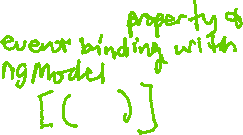 property &
event binding with
ngModel
[( )]